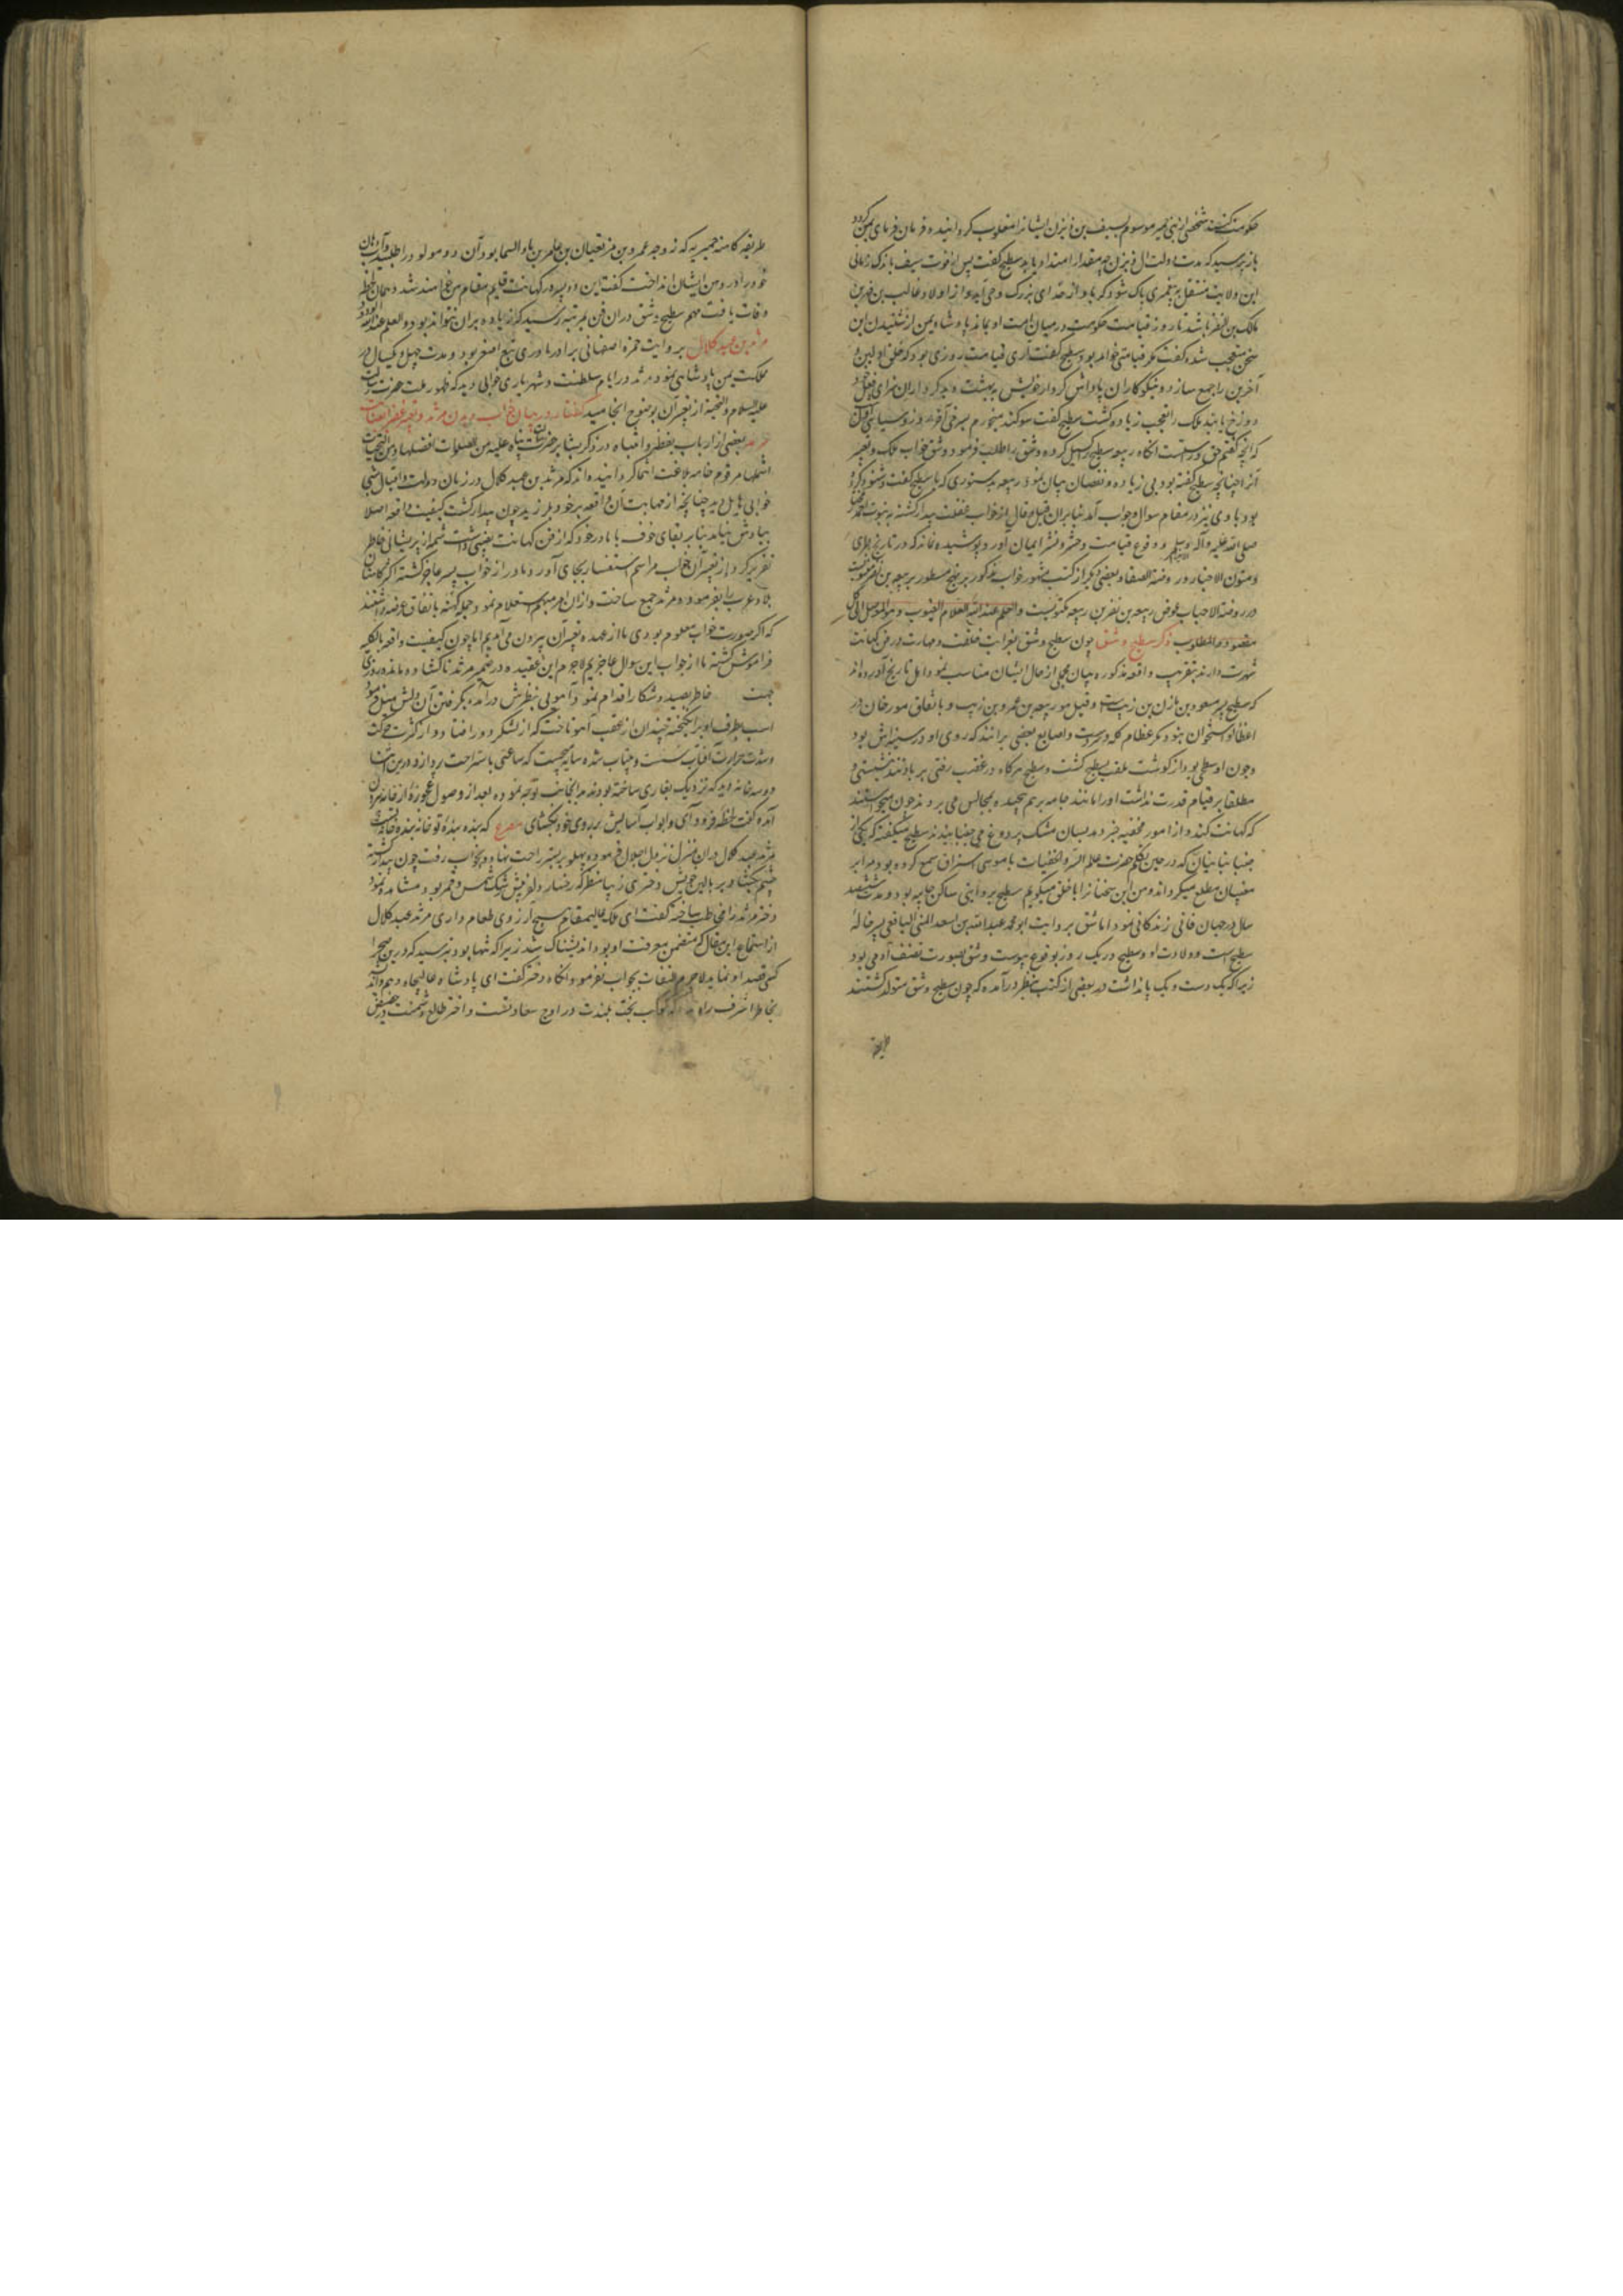 حکومت کنند شخصی از بنی حمیر موسوم بسیف بن ذی یزن ایشانرا مغلوب کردانیده فرمان فرمای یمن کردد
باز پرسید که مدت دولت آل ذی یزن چه مقدار امتداد یابد سطیح کفت پس از فوت سیف باندک زمانی
این ولایت منتقل به پیغمبری پاک شود که باو از خدای بزرک وحی آید و از اولاد غالب بن فهر بن
مالک بن النضر باشد تا روز قیامت حکومت در میان امت او بماند پادشاه یمن از شنیدن این
سخن متعجب شده کفت مکر قیامتی خواهد بود سطیح کفت آری قیامت روزی بود که خلق اولین و
آخرین را جمع سازد و نیکوکاران پاداش کردار خویش به بهشت و بدکرداران سزای فعل خود
دوزخ یابند ملک را تعجب زیاده کشت سطیح کفت سوکند میخورم بسرخی آفق و روز و سیاهی
که آنچه کفتم حق و راستست آنکاه ربیعه سطیح را کسیل کرده و شق را طلب فرمود و شق خواب ملک و تعبیر
آنرا چنانچه سطیح کفته بود بی زیاده و نقصان بیان نمود ربیعه بدستوری که با سطیح کفت و شنود کرده
بود با وی نیز در مقام سوال و جواب آمد بنابر آن قیل و قال از خواب غفلت بیدار کشته به نبوت
صلی الله علیه وآله وسلم و وقوع قیامت و حشر و نشر ایمان آورد و پوشیده نماند که در تاریخ طبری
و متون الاخبار و روضة الصفا و بعضی دیکر از کتب مشهور خواب مذکور بر نهج مسطور بربیعه بن نصر منسوبست
در روضة الاحباب بعوض ربیعه بن نصر بن ربیعه مکتوبست والعلم عندالله العلام الغیوب و هو الموصل الی کل
مقصود و المطلوب ذکر سطیح و شق چون سطیح و شق بغرابت خلقت و مهارت در فن کهانت
شهرت دارند بتقریب واقعه مذکوره بیان مجملی از حال ایشان مناسب نمود اهل تاریخ آورده اند
که سطیح پسر مسعود بن مازن بن ذیب است و قیل هو ربیعه بن عمرو بن ذیب و باتفاق مورخان در
اعظای او استخوان نبود مکر عظام کله و دست و اصابع بعضی برانند که روی او در سینه اش بود
و چون او سطحی بود از کوشت ملقب بسطیح کشت و سطیح هرکاه در غضب رفتی پر باد شدی بنشستی و
مطلقا بر قیام قدرت نداشت او را مانند جامه بر هم پیچیده بمجالس می بردند و چون میخواستند
که کهانت کند و از امور مخفیه خبر دهد بسان مشک پر دوغ می جنبانیدند سطیح میکفته که یکی از
جنیا نیان که در حین تکلم حضرت عالم السر والخفیات با موسی استراق سمع کرده بود مرا بر
مغیبات مطلع میکرداند و من این سخنانرا با خلق میکویم سطیح بروایتی ساکن جابیه بود و مدت ششصد
سال در جهان فانی زندکانی نمود اما شق بروایت ابو محمد عبدالله بن اسعد الیمنی الیافعی پسر خاله
سطیح است و ولادت او و سطیح در یک روز بوقوع پیوست و شق بصورت نصف آدمی بود
زیرا که یک دست و یک پا نداشت در بعضی از کتب بنظر در آمده که چون سطیح و شق متولد کشتند
طریفه
طریفه کاهنه حمیریه که زوجه عمرو بن مزیقیا بن عامر بن ماء السما بود آن دو مولود را طلبید و آب دهان
خود را در دهن ایشان انداخت کفت این دو پسر در کهانت قایم مقام من خواهند شد و همان لحظه
وفات یافت مهم سطیح و شق در آن فن بمرتبه رسید که زیاده بر آن نتواند بود والعلم عندالله الودود
مرثد بن عبد کلال بروایت حمزه اصفهانی برادر مادری تبع اصغر بود و مدت چهل و یکسال در
مملکت یمن پادشاهی نمود مرثد در ایام سلطنت و شهریاری خوابی دید که ظهور بعثت حضرت رسالت
علیه السلام والتحیة از تعبیر آن بوضوح انجامید کفتار در بیان خواب دیدن مرثد و تعبیر عفیرا
بعضی از ارباب یقظه و انتباه در ذکر بشایر حضرت رسالت پناه علیه من الصلوات افضلها و من التحیات
اشملها مرقوم خامه بلاغت انتما کردانیده اند که مرثد بن عبد کلال در زمان دولت و اقبال شبی
خوابی هایل دید چنانچه از مهابت آن واقعه بر خود بلرزید چون بیدار کشت کیفیت واقعه اصلا
بیادش نیامد بنابر بقای خوف با مادر خود که از فن کهانت نصیبی داشت شمه از پریشانی خاطر
تقریر کرد و از تعبیر آن خواب مراسم استفسار بجای آورد مادر از خواب پسر عاجز کشته اکثر کاهنان
بلاد عرب را بفرموده مرثد جمع ساخت و از آن امر مبهم استعلام نمود و جمله کهنه باتفاق عرضه داشتند
که اکر صورت خواب معلوم بودی ما از عهده تعبیر آن بیرون می آمدیم اما چون کیفیت واقعه بالکلیه
فراموش کشته ما از جواب این سوال عاجزیم لاجرم این عقیده در ضمیر مرثد ناکشاده ماند روزی
جهت خاطر بصید و شکار اقدام نمود آهویی بنظرش درآمد بکرفتن آن دلش میل فرمود
اسب بطرف او برانکیخته چندان از عقب آهو تاخت که از لشکر دور افتاد و از کثرت حرکت
و شدت حرارت آفتاب سست و بیتاب شده سایه میجست که ساعتی باستراحت پردازد و درین اثنا
دو سه خانه دید که نزدیک بغاری ساخته بودند بدانجانب توجه نموده بعد از وصول عجوزه از خانه بیرون
آمده کفت لحظه فرود آی و ابواب آسایش بر روی خود بکشای مصرع که بنده بنده تو خانه بنده خانه تست
مرثد عبد کلال در آن منزل نزول اجلال فرموده پهلو بر بستر راحت نهاد و بخواب رفت چون بیدار کشت
چشم بکشاد بر بالین خویش دختری زیبا منظر که رخسار دلفریبش رشک شمس و قمر بود مشاهده نمود
دختر مرثد را مخاطب ساخته کفت ای ملک عالیمقام هیچ آرزوی طعام داری مرثد عبد کلال
از استماع این مقال که متضمن معرفت او بود اندیشناک شد زیرا که تنها بود بترسید که در این صحرا
کسی قصد او نماید لاجرم التفات بجواب نفرمود و آنکاه دختر کفت ای پادشاه عالیجاه و هم
بخاطر اشرف راه که کوکب بخت بلندت در اوج سعادتست و اختر طالع دشمنت در حضیض